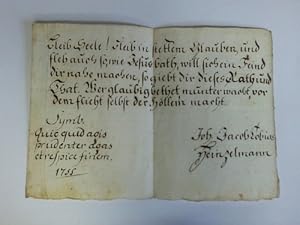 Bleib Seele! bleib in stettem Glauben, und
fleh auch so, wie Jesus bath, will sich ein Feind
dir nahe machen, so giebt dir dieses Rath und
That. Wer glaubig bethet munter wacht, vor
dem flieht selbst der Höllen macht.
Symb.
Quic quid agis
prudenter agas
et respice finem.
1755
Joh. Jacob Tobias
Heinzelmann